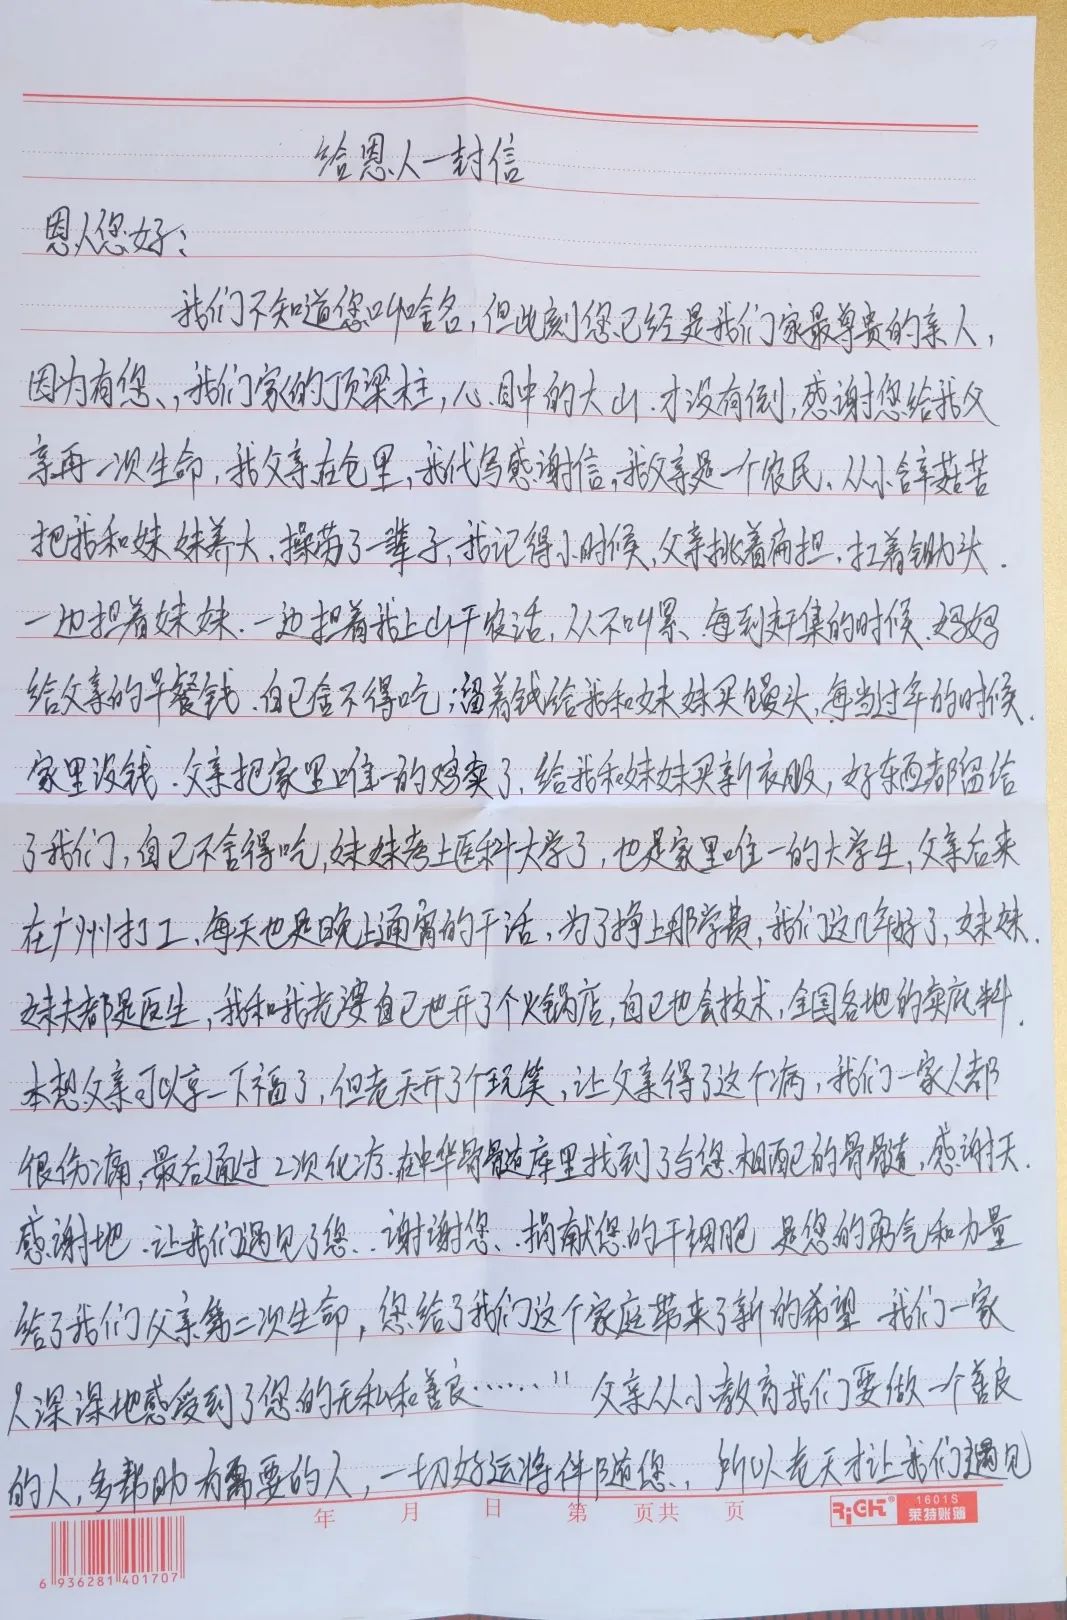 给恩人一封信
恩人您好：
我们不知道您叫啥名，但此刻您已经是我们家最尊贵的亲人，
因为有您、，我们家的顶梁柱，心目中的大山．才没有倒，感谢您给我父
亲再一次生命，我父亲在仓里，我代写感谢信，我父亲是一个农民．从小含辛菇苦
把我和妹妹养大，操劳了一辈子，我记得小时候，父亲挑着扁担．扛着锄头．
一边担着妹妹．一边担着我上山干农活，从不叫累、每到赶集的时候．妈妈
给父亲的早餐钱．自己舍不得吃；留着钱给我和妹妹买馒头，每当过年的时候．
家里没钱．父亲把家里唯一的鸡卖了，给我和妹妹买新衣服，好东西都留给
了我们，自己不舍得吃，妹妹考上医科大学了，也是家里唯一的大学生，父亲后来
在广州打工、每天也是晚上通宵的干活，为了挣上那学费，我们这几年好了，妹妹．
妹夫都是医生，我和我老婆自己也开了个火锅店，自己也会技术，全国各地的卖底料．
本想父亲可以享一下福了，但老天开了个玩笑，让父亲得了这个病，我们一家人都
很伤痛，最后通过2次化疗．在中华骨髓库里找到了与您相配的骨髓，感谢天．
感谢地．让我们遇见了您．．谢谢您、．捐献您的干细胞 是您的勇气和力量
给了我们父亲第二次生命，您给了我们这个家庭带来了新的希望 我们一家
人深深地感受到了您的无私和善良……" 父亲从小教育我们要做一个善良
的人，多帮助有需要的人，一切好运将伴随您．，所以老天才让我们遇见
年 月 日 第 页共 页
RiGHT® 1601S
莱特账簿
6 936281 401707